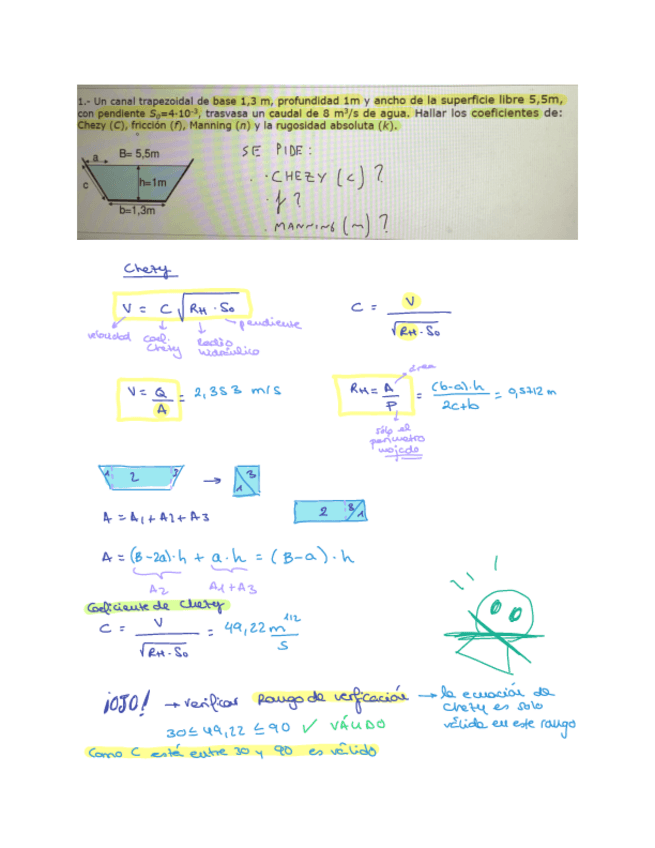 1.- Un canal trapezoidal de base 1,3 m, profundidad 1m y ancho de la superficie libre 5,5m,
con pendiente S₀=4·10⁻³, trasvasa un caudal de 8 m³/s de agua. Hallar los coeficientes de:
Chezy (C), fricción (f), Manning (n) y la rugosidad absoluta (k).
a B= 5,5m
c h=1m
b=1,3m
SE PIDE:
· CHEZY (C) ?
· f ?
· MANNING (n) ?
Chezy
V = C √RH · S₀
velocidad coef. Chezy Radio hidráulico pendiente
C = V / √RH · S₀
V = Q / A = 2,353 m/s
RH = A / P = (b-a)·h / 2c+b = 0,5712 m
área
sólo el
perímetro
mojado
1 2 3 → 1 3
2 3/1
A = A1 + A2 + A3
A = (B-2a)·h + a·h = (B-a)·h
A2 A1+A3
Coeficiente de Chezy
C = V / √RH · S₀ = 49,22 m^1/2 / s
¡OJO! → verificar Rango de verificación → la ecuación de
Chezy es solo
válida en este rango
30 ≤ 49,22 ≤ 90 ✓ VÁLIDO
Como C está entre 30 y 90 es válido